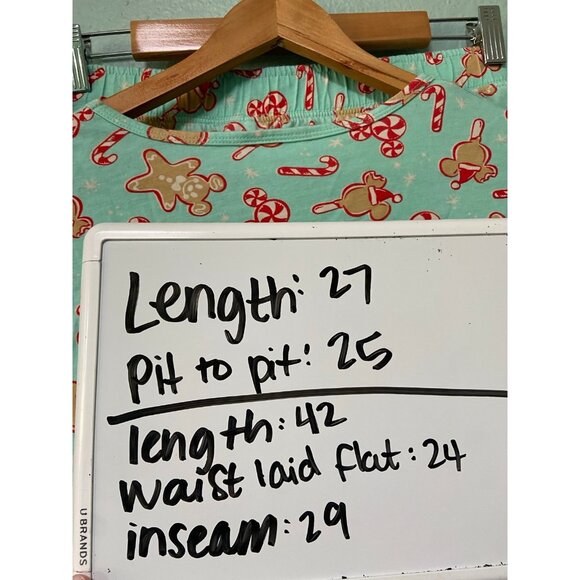 Length: 27
pit to pit: 25
length: 42
waist laid flat: 24
inseam: 29
U BRANDS